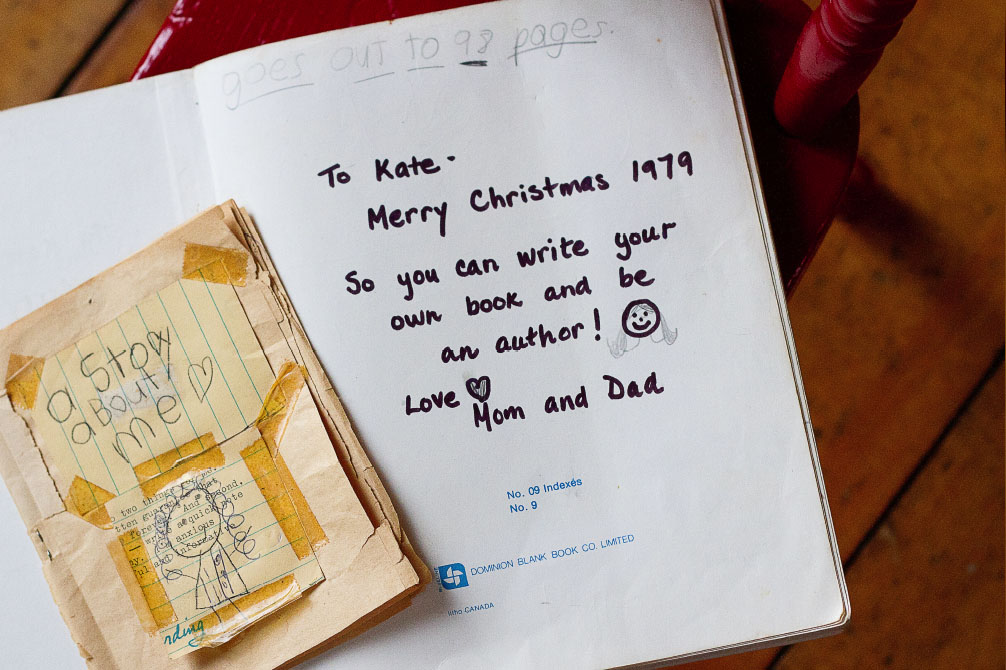 goes out to 98 pages.
To Kate-
Merry Christmas 1979
So you can write your
own book and be
an author!
Love
Mom and Dad
No. 09 Indexes
No. 9
DOMINION BLANK BOOK CO. LIMITED
litho CANADA
a Story
aBout
me
two things
tten guaran that
forever. And second,
write a quick note
anxious
ful and informati
rding